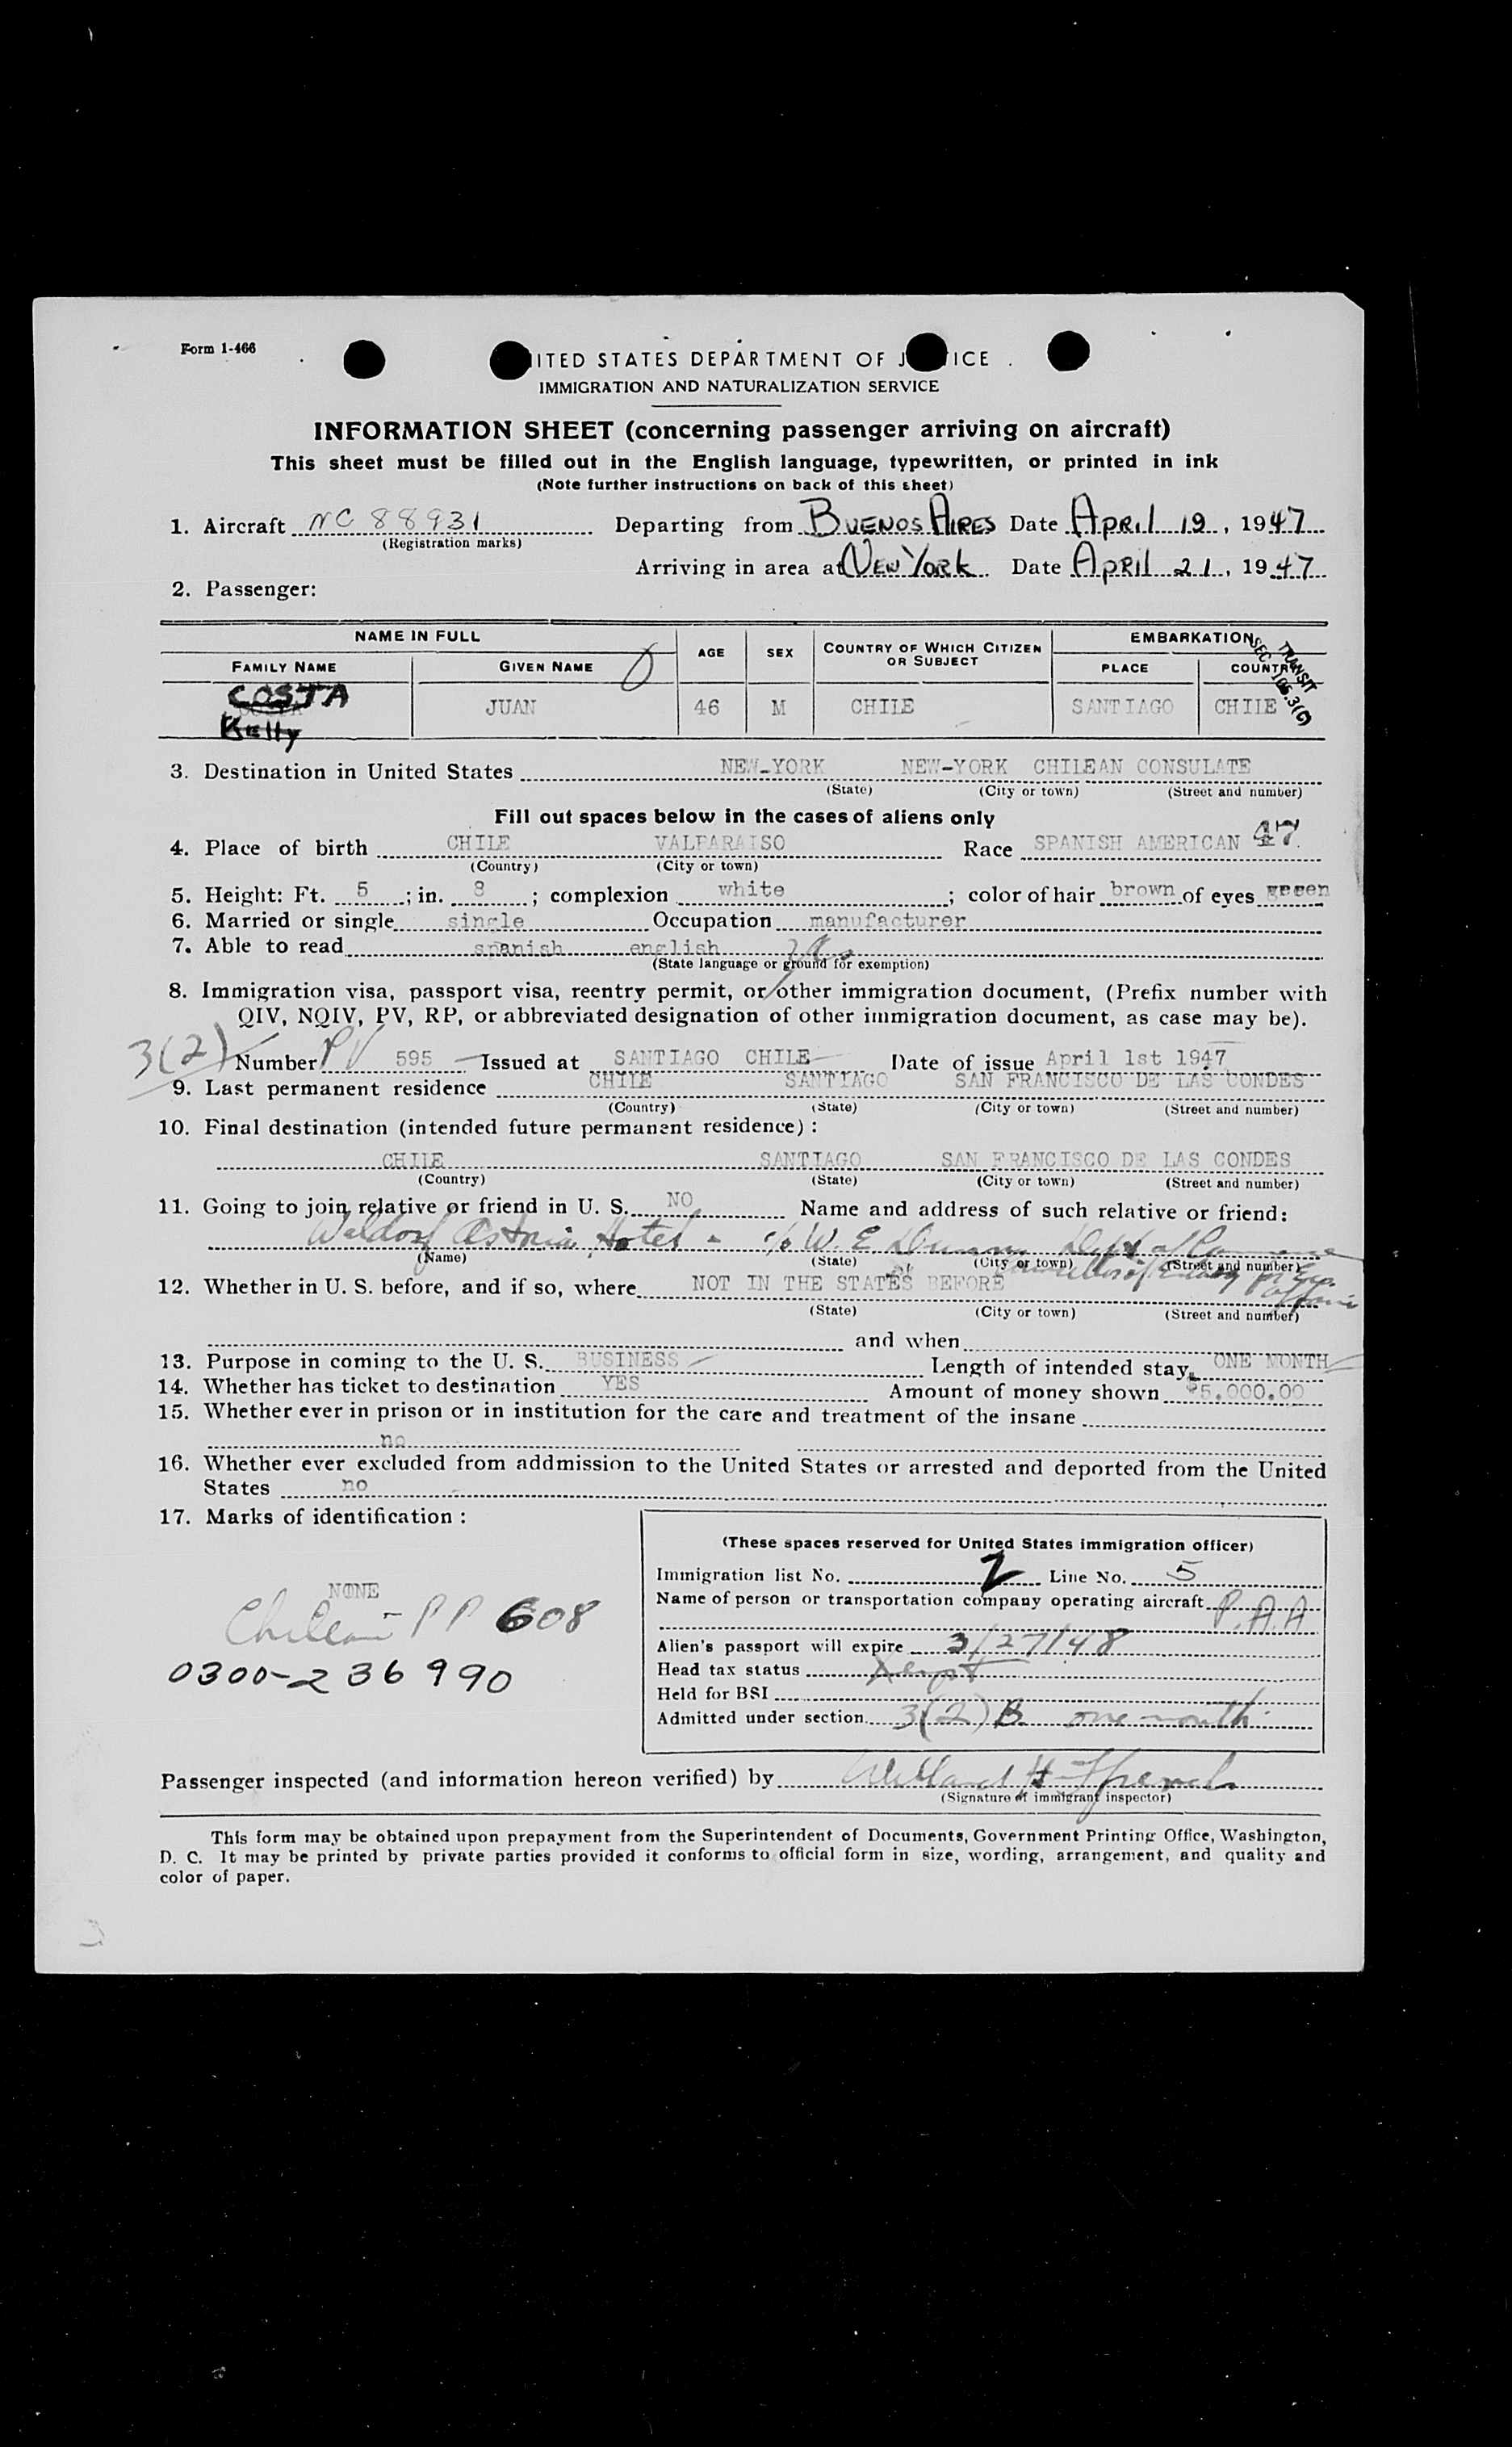 Form I-466
ITED STATES DEPARTMENT OF J ICE
IMMIGRATION AND NATURALIZATION SERVICE
INFORMATION SHEET (concerning passenger arriving on aircraft)
This sheet must be filled out in the English language, typewritten, or printed in ink
(Note further instructions on back of this sheet)
1. Aircraft NC 88931 Departing from BUENOS AIRES Date APRIL 19, 1947
(Registration marks)
Arriving in area at NEW YORK Date APRIL 21, 1947
2. Passenger:
NAME IN FULL AGE SEX COUNTRY OF WHICH CITIZEN OR SUBJECT EMBARKATION
FAMILY NAME GIVEN NAME PLACE COUNTRY
TRANSIT
SEC 106.3(C)
COSTA JUAN 46 M CHILE SANTIAGO CHILE
Kelly
3. Destination in United States NEW-YORK NEW-YORK CHILEAN CONSULATE
(State) (City or town) (Street and number)
Fill out spaces below in the cases of aliens only
4. Place of birth CHILE VALPARAISO Race SPANISH AMERICAN 47
(Country) (City or town)
5. Height: Ft. 5; in. 8; complexion white; color of hair brown of eyes green
6. Married or single single Occupation manufacturer
7. Able to read spanish english
(State language or ground for exemption)
8. Immigration visa, passport visa, reentry permit, or other immigration document, (Prefix number with
QIV, NQIV, PV, RP, or abbreviated designation of other immigration document, as case may be).
3(2) Number PV 595 Issued at SANTIAGO CHILE Date of issue April 1st 1947
9. Last permanent residence CHILE SANTIAGO SAN FRANCISCO DE LAS CONDES
(Country) (State) (City or town) (Street and number)
10. Final destination (intended future permanent residence) :
CHILE SANTIAGO SAN FRANCISCO DE LAS CONDES
(Country) (State) (City or town) (Street and number)
11. Going to join relative or friend in U. S. NO Name and address of such relative or friend:
Waldorf Astoria Hotel - c/o W. E. Dunn Dept of Commerce
(Name) (State) (City or town) (Street and number)
12. Whether in U. S. before, and if so, where NOT IN THE STATES BEFORE
(State) (City or town) (Street and number)
and when
13. Purpose in coming to the U. S. BUSINESS Length of intended stay ONE MONTH
14. Whether has ticket to destination YES Amount of money shown $5.000.00
15. Whether ever in prison or in institution for the care and treatment of the insane
no
16. Whether ever excluded from addmission to the United States or arrested and deported from the United
States no
17. Marks of identification :
NONE
Chilean PP 608
0300-236990
(These spaces reserved for United States immigration officer)
Immigration list No. 2 Line No. 5
Name of person or transportation company operating aircraft P.A.A
Alien's passport will expire 3/27/48
Head tax status Xempt
Held for BSI
Admitted under section 3(2) B one month
Passenger inspected (and information hereon verified) by Willard H. French
(Signature of immigrant inspector)
This form may be obtained upon prepayment from the Superintendent of Documents, Government Printing Office, Washington,
D. C. It may be printed by private parties provided it conforms to official form in size, wording, arrangement, and quality and
color of paper.